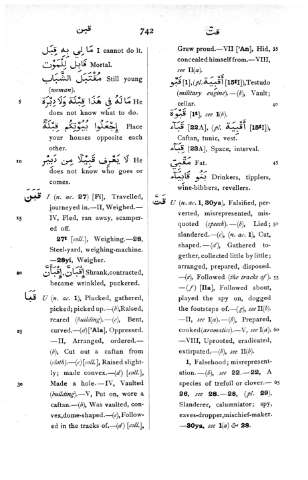 قبن
742
قت
مَا لِي بِهِ قِبَل I cannot do it.
قَابِل لِلْمَوْت Mortal.
مُقْتَبَل الشَّبَاب Still young
(woman).
5
مَا لَهُ فِي هَذَا قِبْلَة وَلَا دِبْرَة He
does not know what to do.
اِجْعَلُوا بُيُوتَكُم قِبْلَة Place
your houses opposite each
other.
10
لَا يَعْرِف قَبِيلًا مِن دَبِير He
does not know who goes or
comes.
قبن I (n. ac. 27) [Fi], Travelled,
journeyed in.—II, Weighed.—
15
IV, Fled, ran away, scamper-
ed off.
27t [coll.], Weighing.—28,
Steel-yard, weighing-machine.
—28yi, Weigher.
20
Shrank, contracted,
became wrinkled, puckered.
قبا U (n. ac. 1), Plucked, gathered,
picked; picked up.—(b), Raised,
reared (building).—(c), Bent,
25
curved.—(d) ['Ala], Oppressed.
—II, Arranged, ordered.—
(b), Cut out a caftan from
(cloth).—(c) [coll.], Raised slight-
ly; made convex.—(d) [coll.],
30
Made a hole.—IV, Vaulted
(building).—V, Put on, wore a
caftan.—(b), Was vaulted, con-
vex, dome-shaped.—(c), Follow-
ed in the tracks of.—(d) [coll.],
Grew proud.—VII ['An], Hid, 35
concealed himself from.—VIII,
see II(a).
قبو [1], (pl. أَقْبِيَة [15t]), Testudo
(military engine).—(b), Vault;
cellar. 40
قبوة [1t], see 1(b).
قَبَاء [22A], (pl. أَقْبِيَة [15t]),
Caftan, tunic, vest.
قِبَاء [23A], Space, interval.
Fat. 45
Drinkers, tipplers,
wine-bibbers, revellers.
قت U (n. ac. 1, 30ya), Falsified, per-
verted, misrepresented, mis-
quoted (speech).—(b), Lied; 50
slandered.—(c), (n. ac. 1), Cut,
shaped.—(d), Gathered to-
gether, collected little by little;
arranged, prepared, disposed.
—(e), Followed (the tracks of). 55
—(f) [Ila], Followed about,
played the spy on, dogged
the footsteps of.—(g), see II(b).
—II, see I(a).—(b), Prepared,
cooked (aromatics).—V, see I(a). 60
—VIII, Uprooted, eradicated,
extirpated.—(b), see II(b).
1, Falsehood; misrepresent-
ation.—(b), see 22.—22, A
species of trefoil or clover.— 65
26, see 28.—28, (pl. 29),
Slanderer, calumniator; spy,
eaves-dropper, mischief-maker.
—30ya, see 1(a) & 28.